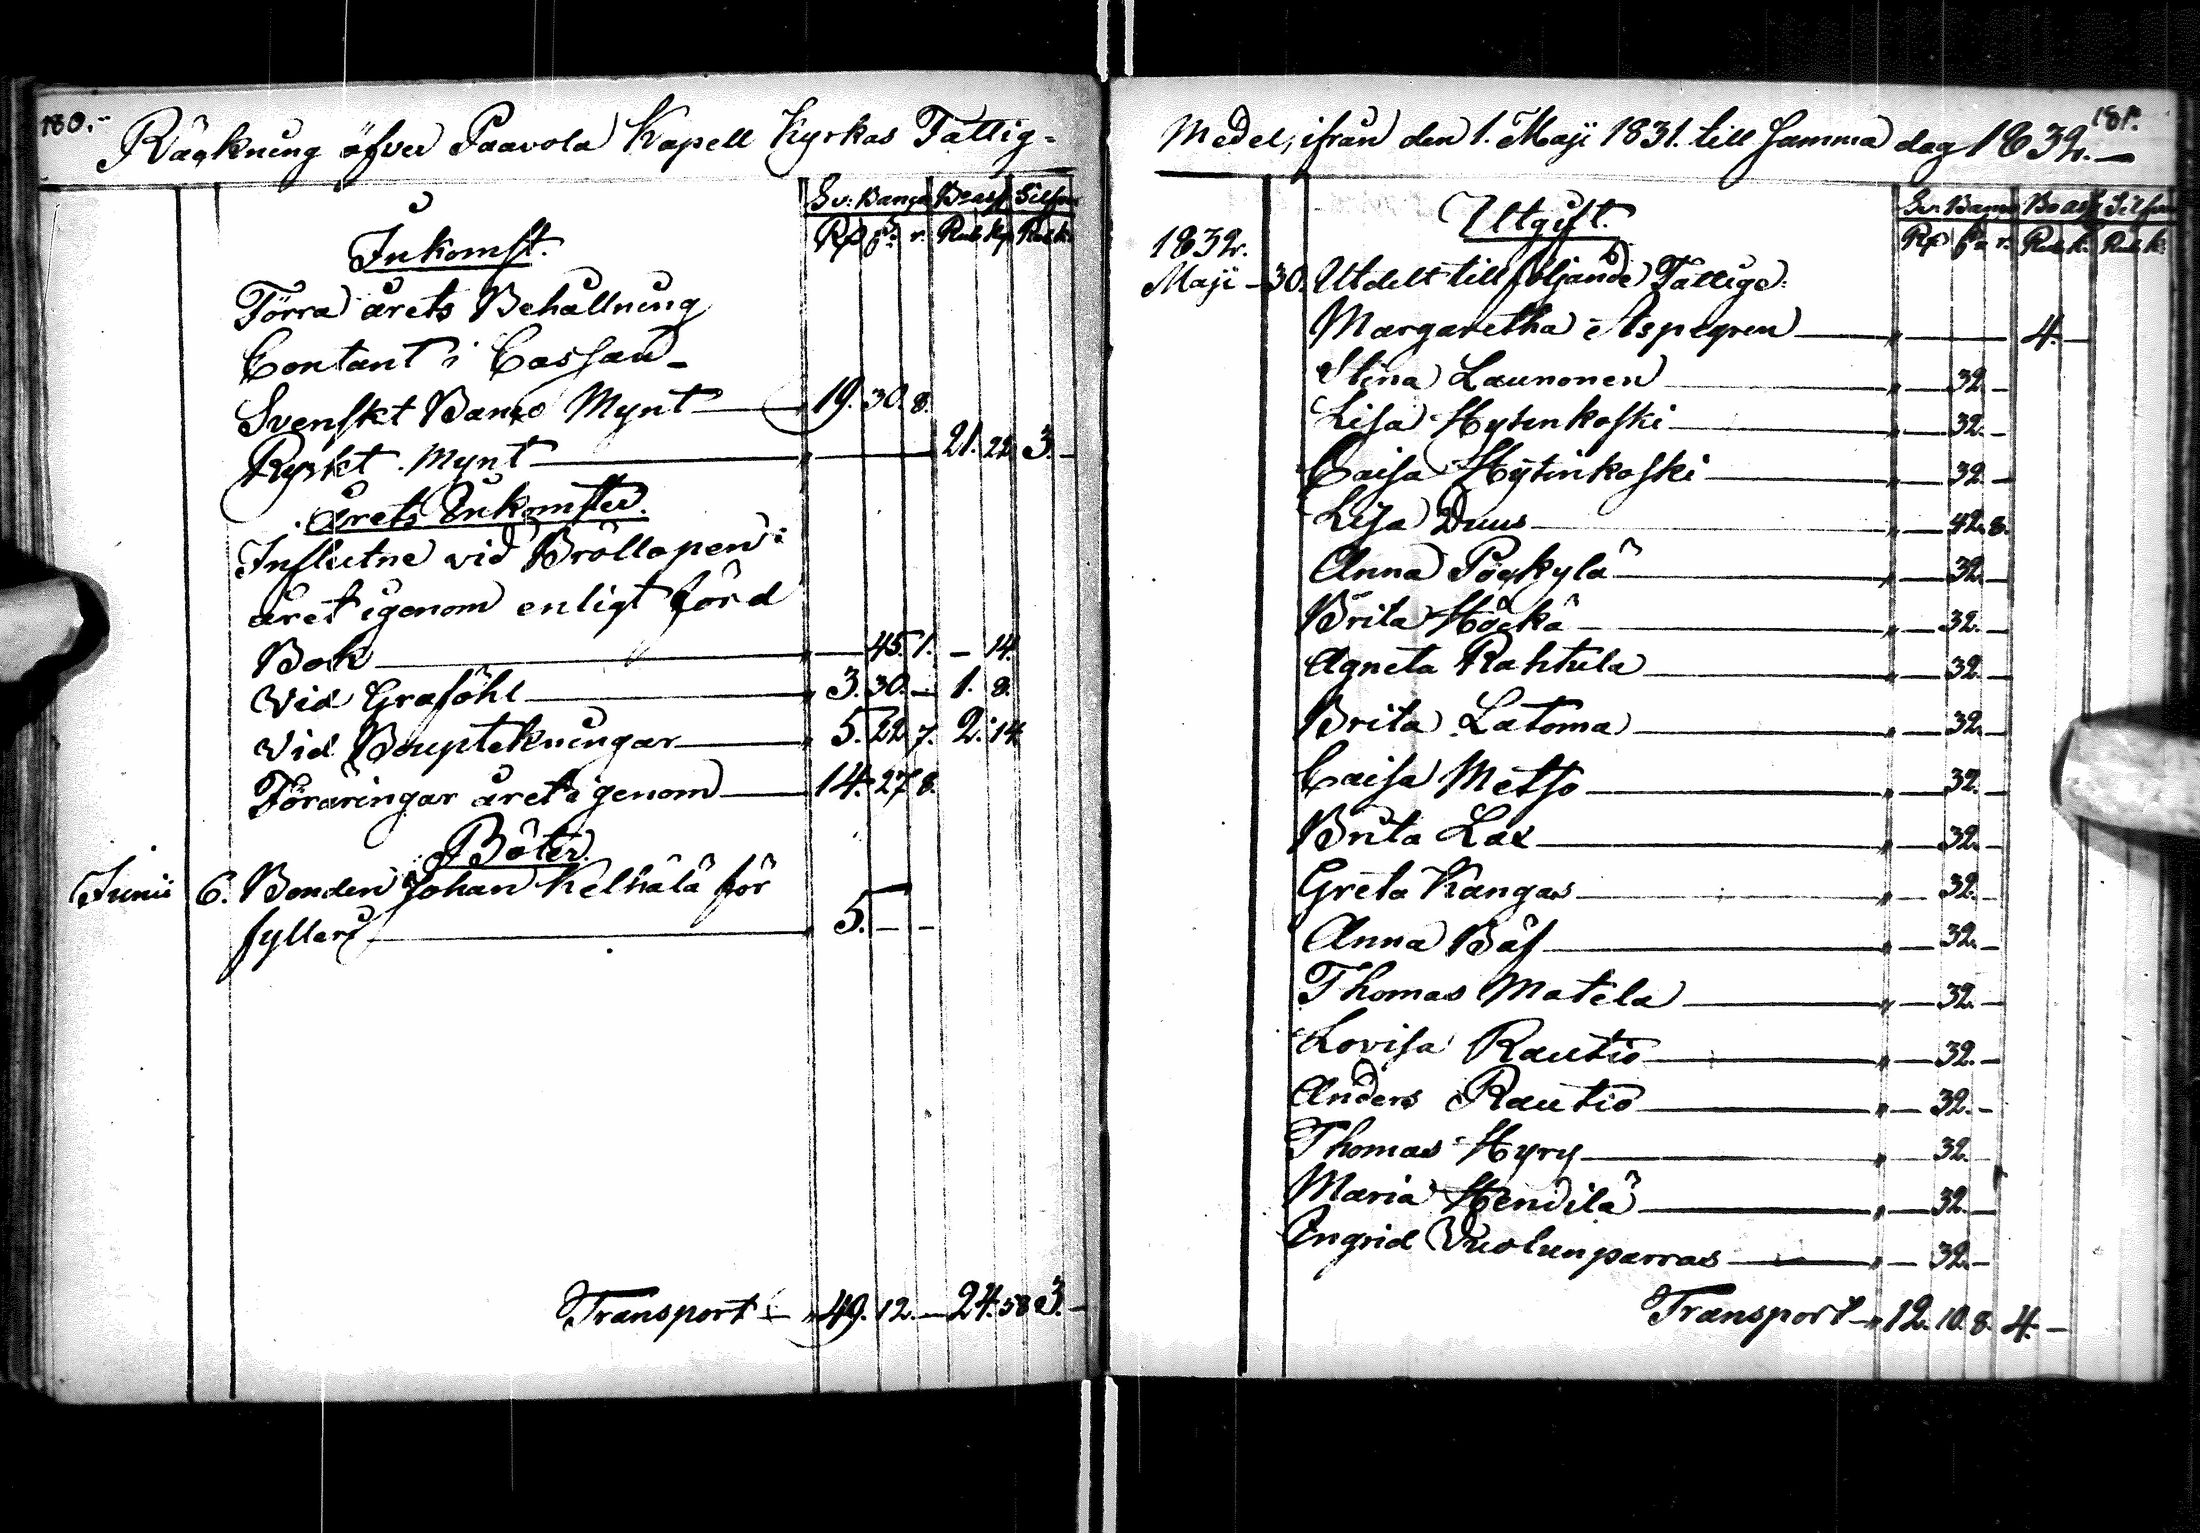 180.
Räckning öfver Paavola Kapell Kyrkas Fattig=
Sv: Banco Bcass Silfver
Rd s. r. Rub. Kp. Rub. k.
Inkomst.
Förra årets Behållning
Contant i Cassan -
Svenskt Banco Mynt 19. 30. 8.
Ryskt Mynt 21. 22. 3. -
Årets Inkomster.
Influtne vid Bröllopen
året igenom enligt förd
Bok " - 45. 1. - 14.
Vid Graföhl " 3. 30. - 1. 8.
Vid Bouptekningar " 5. 22. 7. 2. 14.
Föräringar året igenom 14. 27. 8.
Böter.
Junii 6. Bonden Johan Kelhälä för
fylleri 5. - -
Transport - " 49. 12. - 24. 58. 3. -
181.
Medel, ifrån den 1. Maji 1831. till samma dag 1832. -
Sv. Banco Bcass Silfver
Rd s. r. Rub. k. Rub. k.
Utgift.
1832.
Maji - 30. Utdelt till följande Fattige:
Margaretha Aspegren " 4. -
Stina Launonen " - 32. -
Lisa Hytinkoski " - 32. -
Caisa Hytinkoski " - 32. -
Lisa Duus " - 42. 8.
Anna Pöykylä " - 32. -
Brita Höckä " - 32. -
Agneta Rahtula " - 32. -
Brita Latoma " - 32. -
Caisa Metso " - 32. -
Brita Lax " - 32. -
Greta Kangas " - 32. -
Anna Bäf " - 32. -
Thomas Matela " - 32. -
Lovisa Rautio " - 32. -
Anders Rautio " - 32. -
Thomas Hyry " - 32. -
Maria Hendilä " - 32. -
Ingrid Vuolunparras " - 32. -
Transport - " 12. 10. 8. 4. -